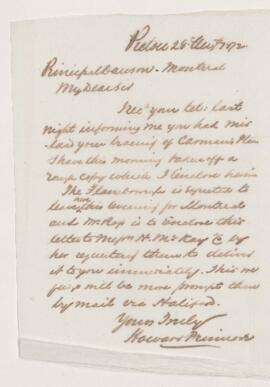 Pictou 28 Augt 1872
Principal Dawson - Montreal
My Dear Sir
Recd your tel: last
night informing me you had mis
laid your tracing of Carman's Plan
I have this morning taken off a
rough copy which I enclose herein
The Flamborough is expected to
leave this evening for Montreal
and Mr Ross is to enclose this
letter to Messrs H. McKay & Co by
her requesting them to deliver
it to you immediately. This we
will be more prompt than
by mail via Halifax.
Yours Truly
Howard Primrose